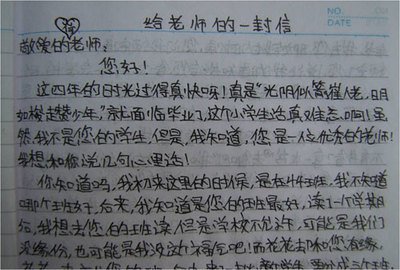 给老师的一封信
NO.
DATE
敬爱的老师：
您好！
这四年的时光过得真快呀！真是“光阴似箭催人老，日月
如梭赶少年”就面临毕业了，这个小学生活真难忘啊！虽
然我不是您的学生，但是，我知道，您是一位优秀的老师！
我想和你说几句心里话！
你知道吗，我初来这里的时候，是在4年班，我不知道
哪个班好，后来，我知道是您的班最好，读了一个学期
后，我想去您的班读，但是学校不允许，可能是我们
没缘份，也可能是我没这个福气吧！而